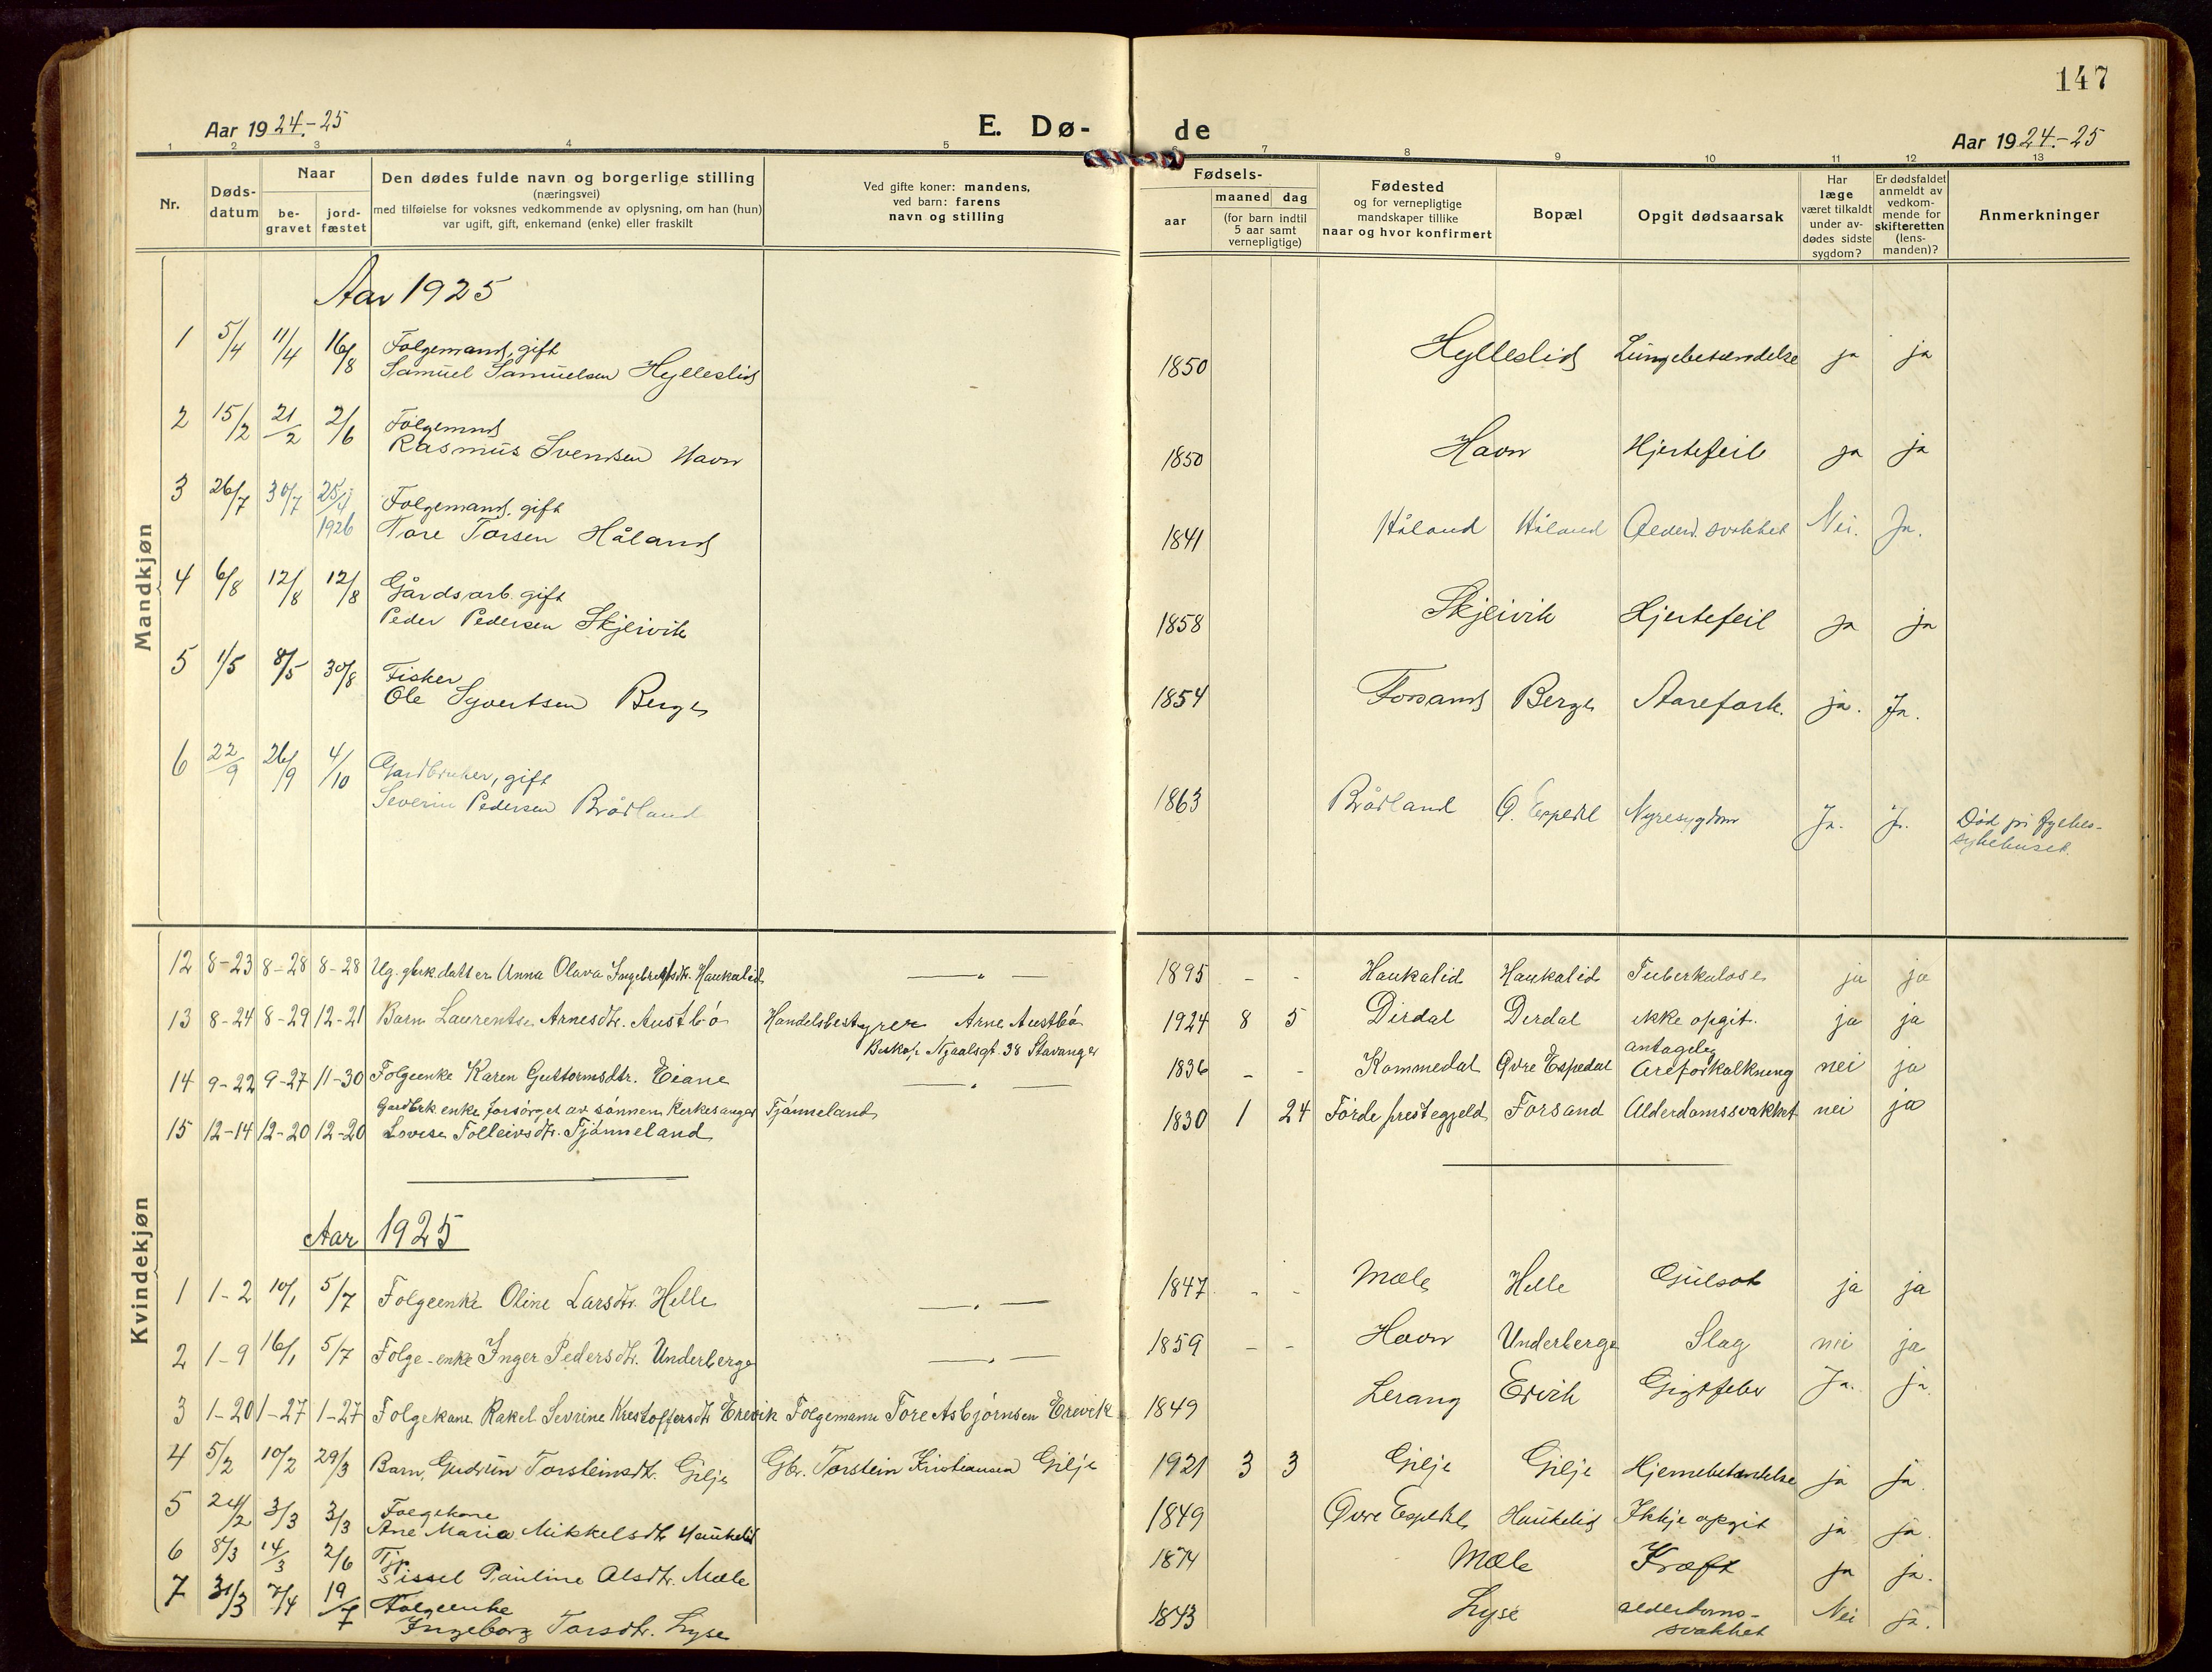 147
Aar 1924.-25
E. Dø-
de
Aar 1924.-25
1 2 3 4 5 6 7 8 9 10 11 12 13
Nr.
Døds-
datum
Naar
be-
gravet
jord-
fæstet
Den dødes fulde navn og borgerlige stilling
(næringsvei)
med tilføielse for voksnes vedkommende av oplysning, om han (hun)
var ugift, gift, enkemand (enke) eller fraskilt
Ved gifte koner: mandens,
ved barn: farens
navn og stilling
Fødsels-
aar
maaned dag
(for barn indtil
5 aar samt
vernepligtige)
Fødested
og for vernepligtige
mandskaper tillike
naar og hvor konfirmert
Bopæl
Opgit dødsaarsak
Har
læge
været tilkaldt
under av-
dødes sidste
sygdom?
Er dødsfaldet
anmeldt av
vedkom-
mende for
skifteretten
(lens-
manden)?
Anmerkninger
Mandkjøn
Aar 1925
1 5/4 11/4 16/8 Folgemand, gift
Samuel Samuelsen Hylleslid 1850 Hylleslid Lungebetændelse ja ja
2 15/2 21/2 2/6 Folgemnd
Rasmus Svendsen Havn 1850 Havn Hjertefeil ja ja
3 26/7 30/7 25/4 1926 Folgemand, gift
Tore Torsen Håland 1841 Håland Håland Alderd. svakhet Nei. Ja.
4 6/8 12/8 12/8 Gårdsarb. gift
Peder Pedersen Skjeivik 1858 Skjeivik Hjertefeil ja ja
5 1/5 8/5 30/8 Fisker
Ole Syvertsen Berge 1854 Forsand Berge Aarefork. ja. Ja.
6 22/9 26/9 4/10 Gardbruker, gift
Severin Pedersen Brådland 1863 Brådland Ø. Espedl Nyresygdom Ja. Ja. Død på fylkes-
sykehuset.
Kvindekjøn
12 8-23 8-28 8-28 Ug. gbrk.datter Anna Olava Ingebretsdtr. Haukalid —"— 1895 - - Haukalid Haukalid Tuberkulose ja ja
13 8-24 8-29 12-21 Barn Laurentse Arnesdtr. Austbø Handelsbestyrer Arne Austbø
Biskop Njaalsgt. 38 Stavanger 1924 8 5 Dirdal Dirdal ikke opgit. ja ja
14 9-22 9-27 11-30 Folgeenke Karen Guttormsdtr. Eiane —"— 1836 - - Kommedal Øvre Espedal antagelig
Areforkalkning nei ja
15 12-14 12-20 12-20 Gardbrk.enke forsørget av sønnen kirkesanger Tjønneland
Lovise Tolleivsdtr. Tjønneland 1830 1 24 Førde prestegjeld Forsand Alderdomssvakhet nei ja
Aar 1925
1 1-2 10/1 5/7 Folgeenke Oline Larsdtr. Helle —"— 1847 - - Mæle Helle Gulsot ja ja
2 1-9 16/1 5/7 Folge-enke Inger Pedersdtr. Underberge —"— 1859 - - Havn Underberge Slag nei ja
3 1-20 1-27 1-27 Folgekone Rakel Sevrine Kristoffersdtr Erevik Folgemann Tore Asbjørnsen Erevik 1849 Lerang Erevik Gigtfeber Ja. ja
4 5/2 10/2 29/3 Barn, Gudrun Torsteinsdtr. Gilje Gbr. Torstein Kristiansen Gilje 1921 3 3 Gilje Gilje Hjernebetændelse ja ja.
5 24/2 3/3 3/3 Folgekone
Ane Maria Mikkelsdtr Haukelid 1849 Øvre Espedal Haukelid Ikkje opgit ja ja.
6 8/3 14/3 2/6
Sissel Pauline Olsdtr. Mæle 1874 Mæle Kræft ja ja.
7 31/3 7/4 19/7 Folgeenke
Ingeborg Torsdtr. Lyse 1843 Lyse alderdoms-
svakhet Nei Ja.